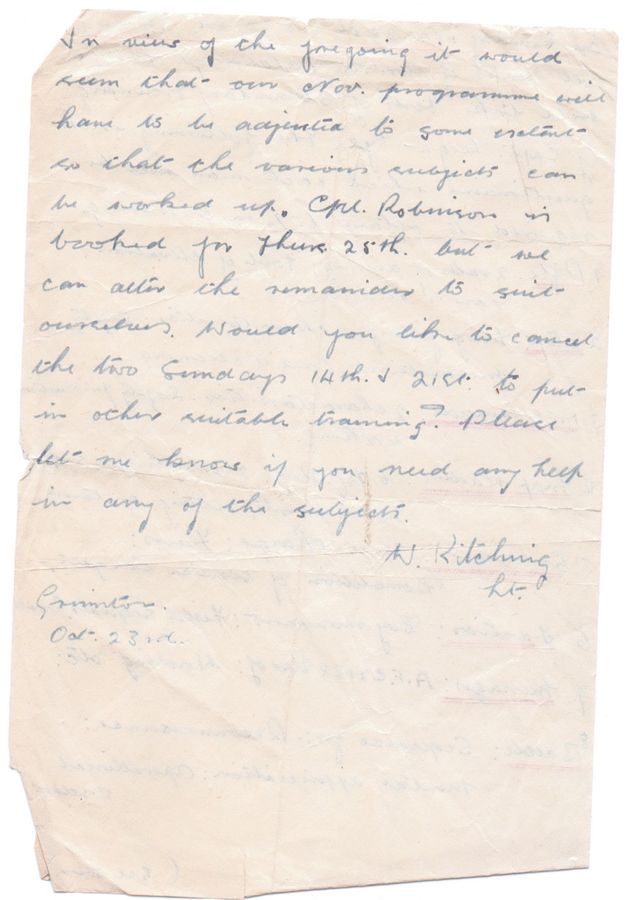 In view of the foregoing it would
seem that our Nov. programme will
have to be adjusted to some extent
so that the various subjects can
be worked up. Cpl. Robinson is
booked for Thurs 25th. but we
can alter the remainder to suit
ourselves. Would you like to cancel
the two Sundays 14th. & 21st. to put
in other suitable training? Please
let me know if you need any help
in any of the subjects.
W. Kitching
Lt.
Grimston.
Oct. 23rd.